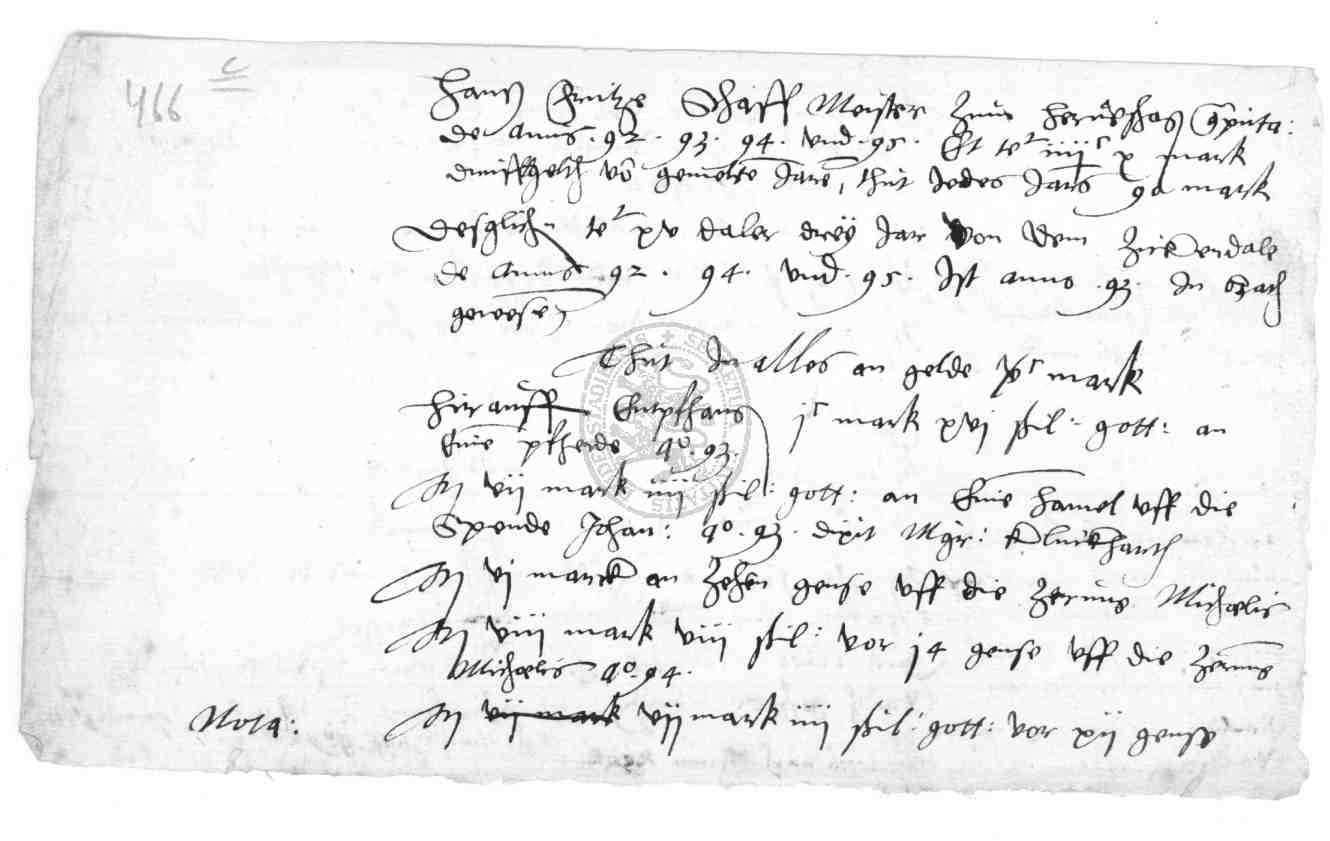 466 c
Hans Fritze Schaff Meister Zum
de Annis . 92 . 93 . 94 . vnd . 95 . Et te^t iiii^c x mark
vo gemelte Jare, thut Jedes Jars 90 mark
Desglichen te^t xv daler drey Jar von dem
de Annis . 92 . 94 . vnd . 95 . Ist anno . 93 . In
gewesen
Thut In alles an gelde v^c mark
Hirauff Entpfhang j^c mark xvj ßil: gott: an
Eine pfherde a^o . 93 .
It vij mark iiij ßil: gott: an Eine hamel vff die
Spende Johan: a^o . 93 . dixit Mgr:
It vj marck an Zehen gense vff die Michaelis
It viij mark viij ßil: vor 14 gense vff die
Michaelis a^o . 94 .
Nota: It vij mark vij mark iiij ßil: gott: vor xij gense